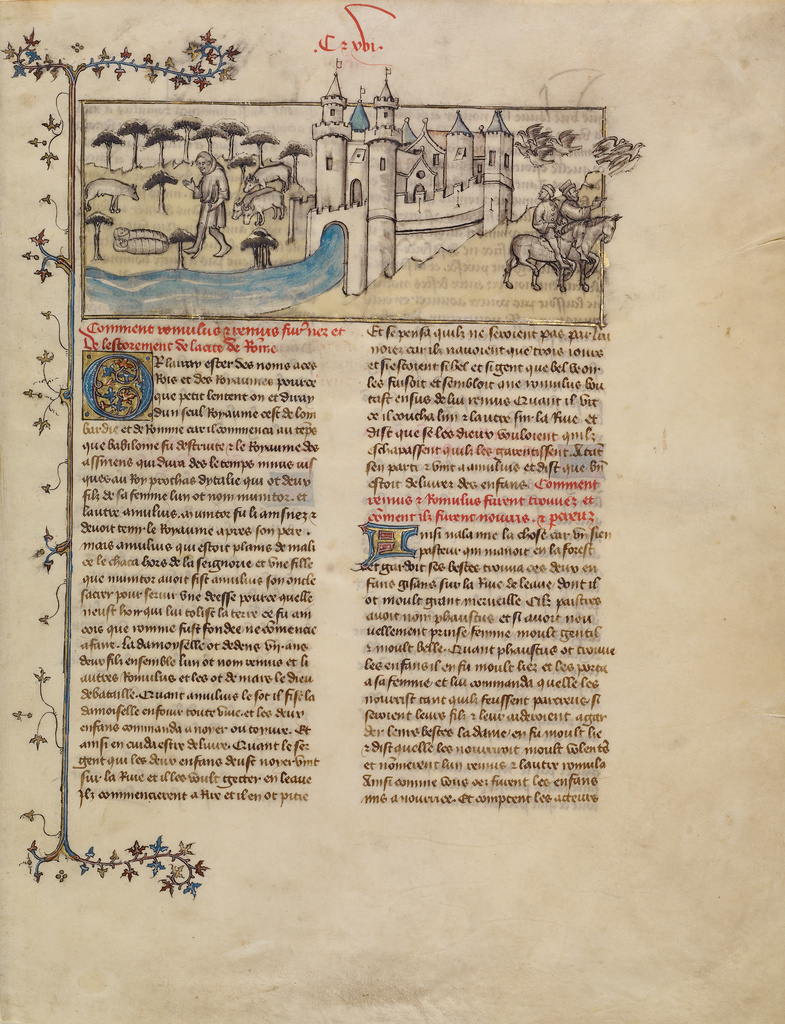 C xvbi.
Comment romulus et remus fur̃ nez et
De lestorement de la cite de Rome
Or lairay ester des noms a ces
Rois et des Royaumes pource
que petit lentent on et diray
dun seul Royaume cest de lom
bardie et de Romme car il commenca au tẽps
que babiloine fu destruite et le Royaume des
assiriens qui dura des le temps ninus
ques au Roy prochas dytalie qui ot deux
filz de sa femme lun ot nom numitor. et
lautre amulius. numitor fu li ainsnez et
devoit tenir le Royaume apres son pere.
mais amulius qui estoit plains de mali
ce le chaca hors de la seignorie et vne fille
que numitor auoit fist amulius son oncle
sacrer pour seruir vne deesse pource quelle
neust hoir qui lui tolist la terre ce fu ain
cois que romme fust fondee ne cõmencie
a faire. La damoyselle ot dedens vij. ans
deux filz ensemble lun ot nom remus et li
autres Romulus et les ot de mars le dieu
de bataille. Quant amulius le sot il fist la
damoiselle enfouir toute viue. et les deux
enfans commanda a noyer ou Et
ainsi en cuida estre deliure. Quant le ser
gent qui les deux enfans deust noyer vint
sur la Riue et il les voult gecter en leaue
Ilz commencierent a Rire et il en ot pitie
Et se pensa quilz ne seroient pas par lui
noiez car ilz nauoient que trois iours
et si estoient si bel et si gent que bel veoir
les faisoit et sembloit que romulus bou
tast ensus de lui remus Quant il vit
ce il coucha lun et lautre sur la Riue et
dist que se les dieux vouloient quilz
eschapassent quilz les garentissent. A tãt
sen parti et vint a amulius et dist que bñ
estoit deliurez des enfans. Comment
remus et Romulus furent trouuez et
cõment ilz furent nouris.
Ainsi ala une la chose car vn sien
pasteur qui manoit en la forest
et gardoit ses bestes trouua ces deux en
fans gisans sur la Riue de leaue dont il
ot moult grant merueille Cilz paistres
auoit nom phaustus et si auoit nou
uellement prinse femme moult gentil
et moult belle. Quant phaustus ot trouue
les enfans il en fu moult liez et les porta
a sa femme et lui commanda quelle les
nourrist tant quilz feussent parcreus. si
seroient leurs filz et leur aideroient a gar
der leurs bestes la dame en fu moult lie
et dist quelle les nourriroit moult volent̃s
et nõmerent lun remus et lautre romula
Ainsi comme vous oez furent les enfans
mis a nourrice. Et comptent les acteurs